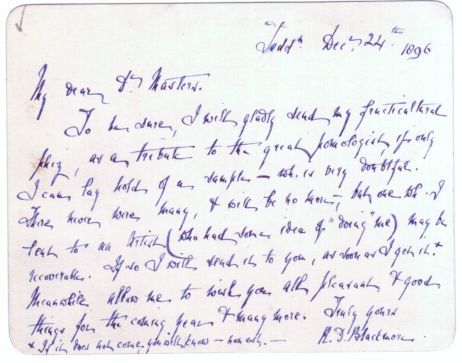 Tedd^n. Dec^r. 24^th. 1896
My dear D^r. Masters.
To be sure, I will gladly send my fructicultural
phiz, as a tribute to the great pomologist, if only
I can lay hold of a sample – wh. is very doubtful.
There never were many, & will be no more; but one wh. I
lent to an Artist (who had some idea of "doing" me) may be
recoverable. If so I will send it to you, as soon as I get it.
Meanwhile allow me to wish you all pleasant & good
things for the coming year & many more. Truly yours
& If it does not come, you will know – R. D. Blackmore.